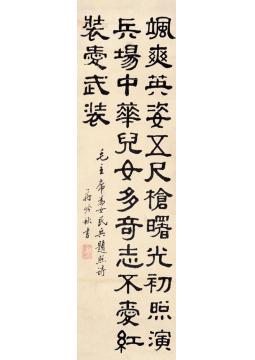 颯爽英姿五尺槍曙光初照演
兵場中華兒女多奇志不愛紅
裝愛武裝
毛主席為女民兵題照詩
蔣吟秋書